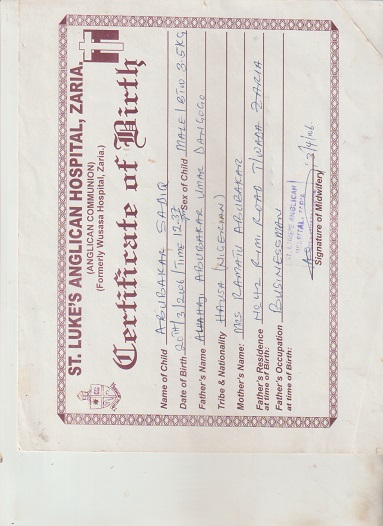 ST. LUKE'S ANGLICAN HOSPITAL, ZARIA.
(ANGLICAN COMMUNION)
(Formerly Wusasa Hospital, Zaria.)
Certificate of Birth
Name of Child ABUBAKAR SADIQ
Date of Birth 20TH/3/2006/TIME 12-37 Sex of Child MALE/BTW 3.5KG
Father's Name ALHAJI ABUBAKAR UMAR DANGOGO
Tribe & Nationality HAUSA (NIGERIAN)
Mother's Name: MRS RAMATU ABUBAKAR
Father's Residence at time of Birth: ROAD TIWADA ZARIA
Father's Occupation at time of Birth: BUSINESSMAN
ST. LUKE'S ANGLICAN
HOSPITAL ZARIA
3/4/06
Signature of Midwifery